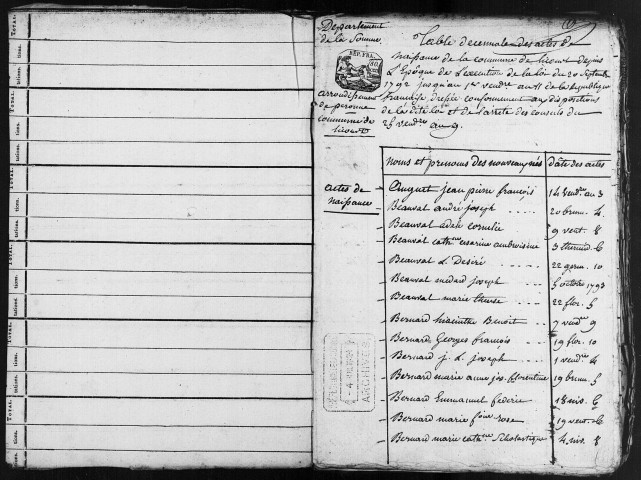 Département
de la Somme
arrondissement
de peronne
commune de
licourt
Table Decennale des actes de
naissance de la commune de licourt depuis
L'Epôque de L'execution de la loi du 20 Septembre
1792 jusqu'au 1er vendre an 11 de la République
française, dressée conformement aux dispositions
de la dite loi et de l'arreté des consuls du
25 vendre an 9.
REP. FRA.
noms et prenoms des nouveaux nés dâte des actes
actes de
naissance
Auguet jean pierre françois 14 Vendre an 3
Beauval andré joseph 20 brum. 4.
Beauval adele cornelie 9 vent. 8
Beauval cathne cesarine ambroisine 3 thermid. 6
Beauval L. Desiré 22 germ. 10
Beauval medard joseph 5 octbre 1793
Beauval marie therese 22 flor. 5
Bernard hiacinthe Benoit 7 vendre 9
Bernard Georges françois 19 flor. 10
Bernard j. L. joseph 1 vendre 4
Bernard marie anne jos. florentine 19 brum. 5
Bernard Emmanuel federic 18 nis. 6
Bernard marie rose 19 vent. 6
Bernard marie cathne Scholastique 4 nis. 8
ARCHIVES
TOTAL.
tions.
tations.
TOTAL.
tions.
tations.
TOTAL.
tions.
tations.
TOTAL.
tions.
tations.
TOTAL.
tions.
tations.
TOTAL.
tions.